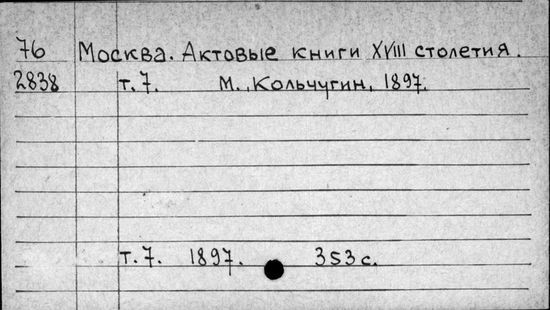 76 Москва. Актовые книги XVIII столетия.
2838 т. 7. М., Кольчугин, 1897.
т. 7. 1897. 353 с.